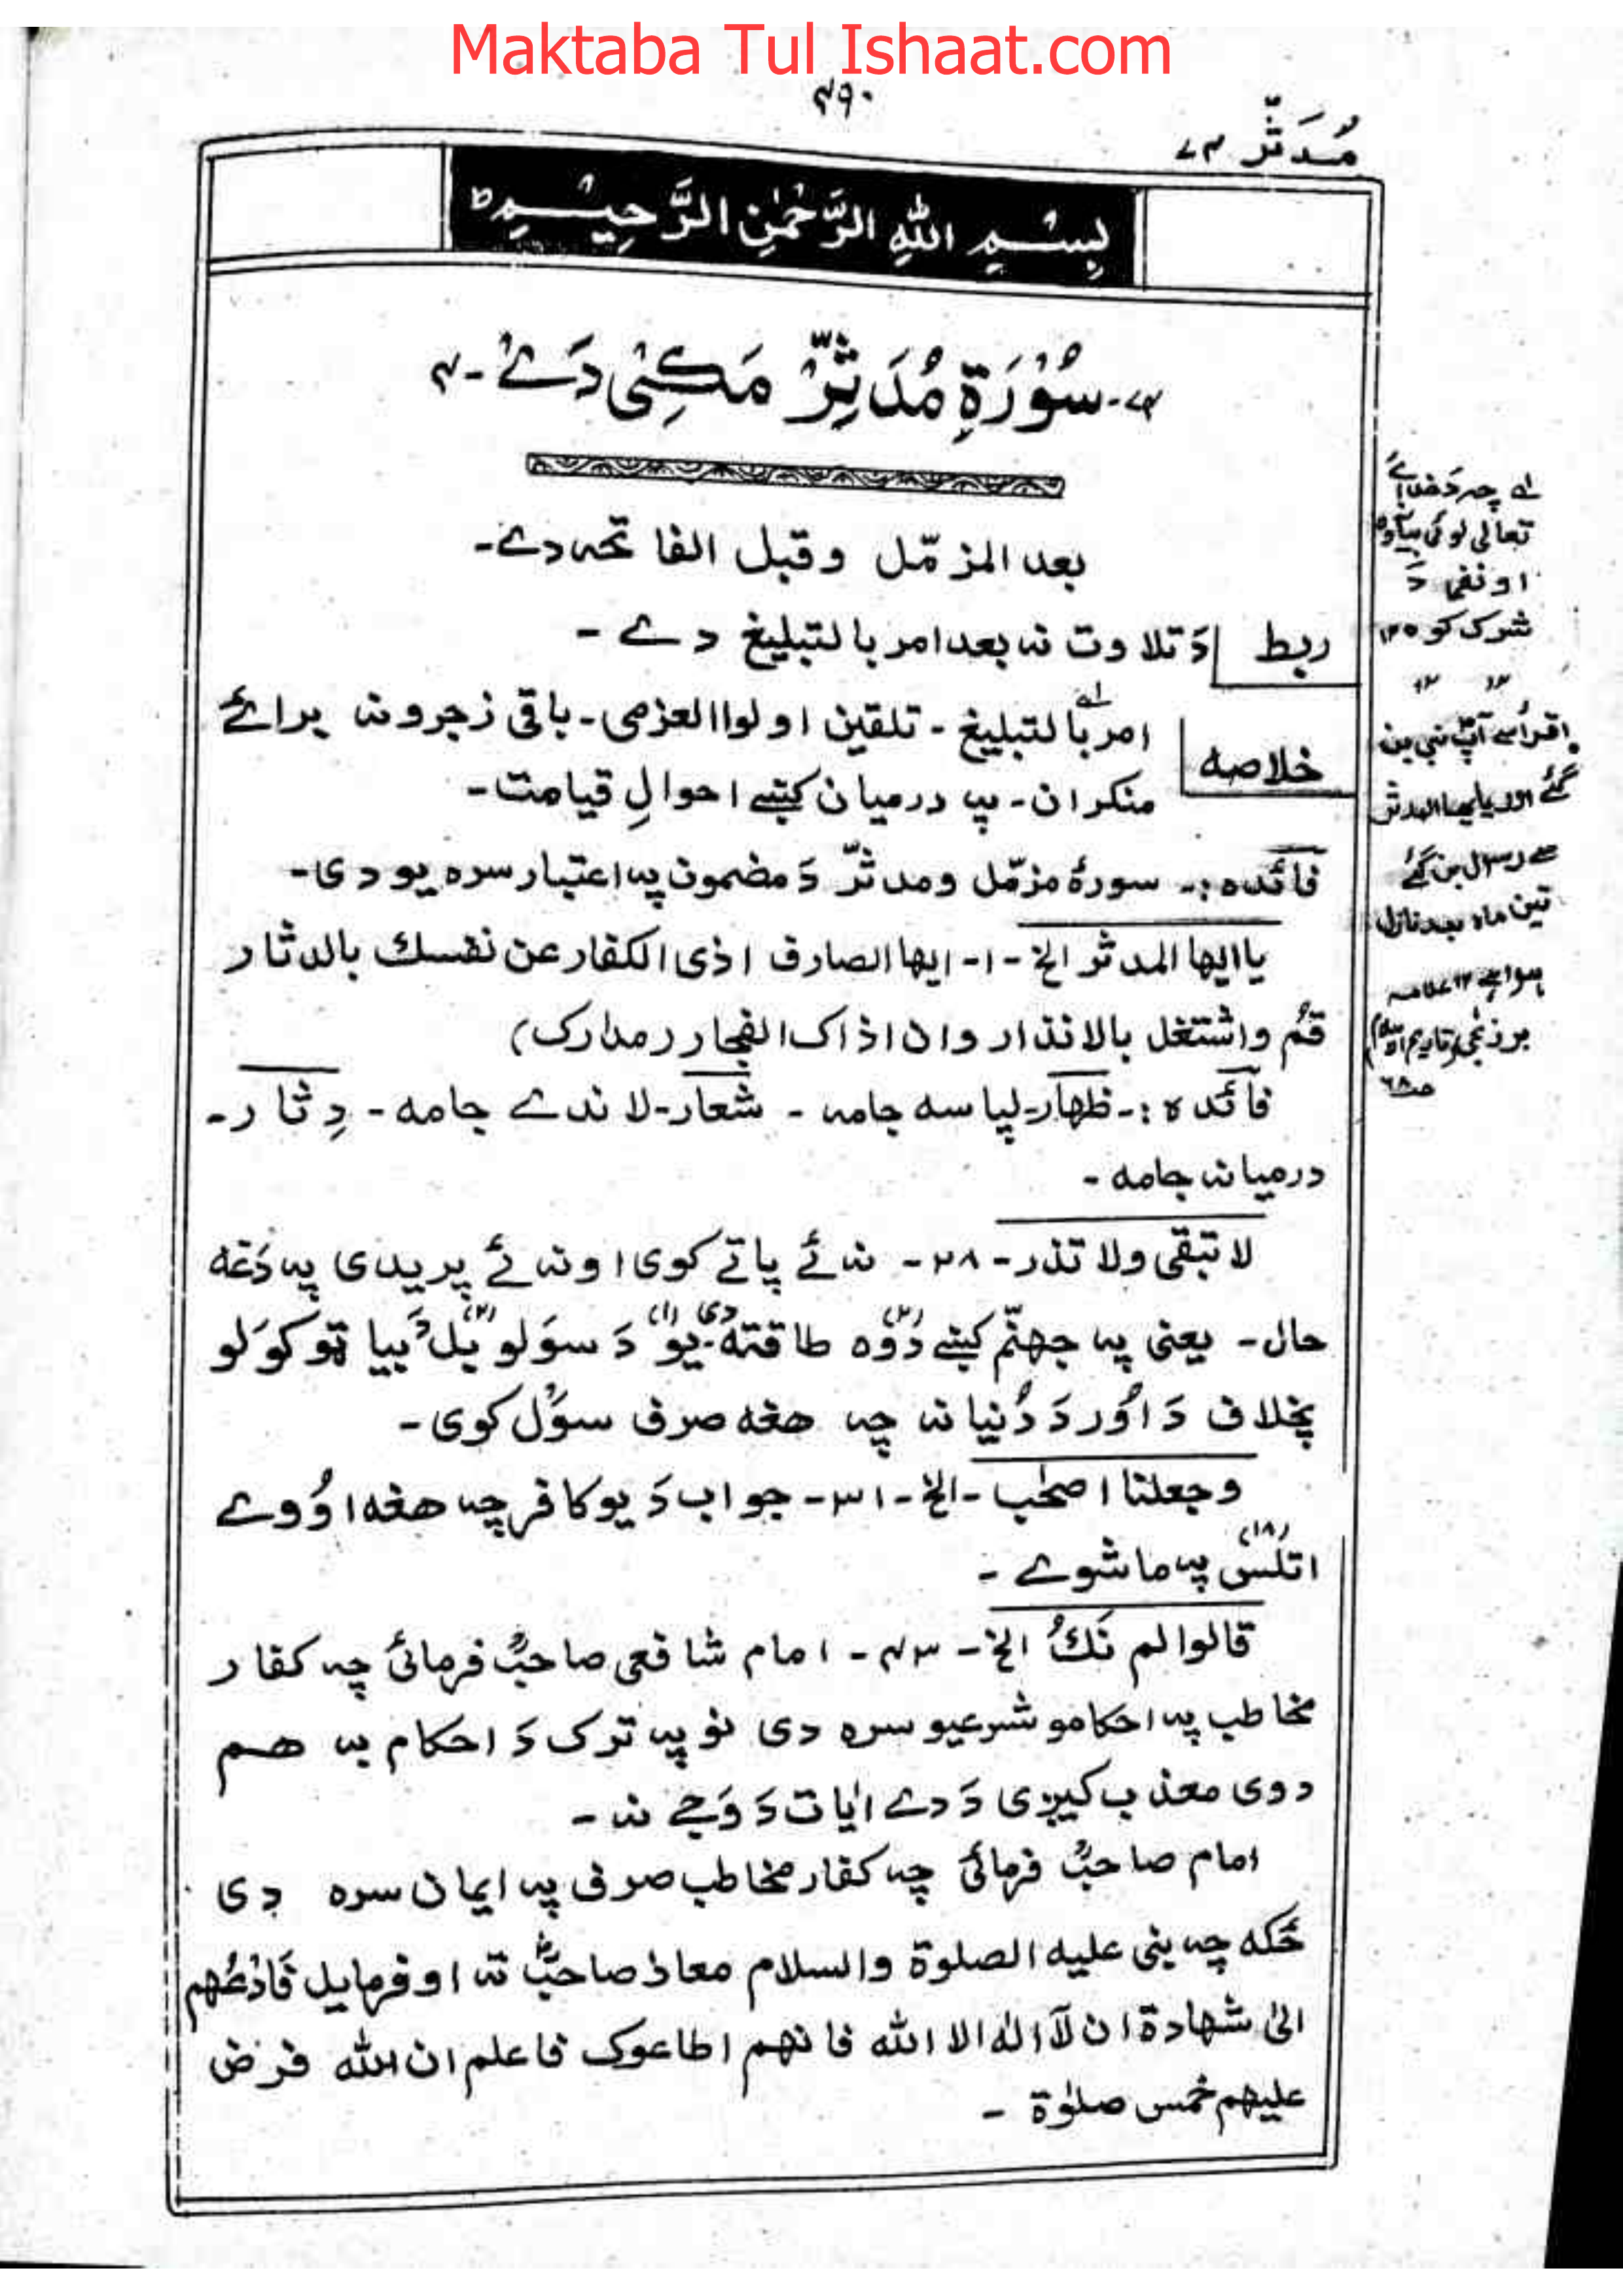 Maktaba Tul Ishaat.com
۴۹۰
مُدَثِّر ۷۴
بِسْمِ اللهِ الرَّحْمٰنِ الرَّحِيْمِ
۷۴- سُوْرَةِ مُدَثِّرْ مَكِّىْ دَےْ -۴
بعد المزمّل وقبل الفاتحه دے-
ربط دَ تلاوت نه بعد امر بالتبليغ دے -
خلاصه امر بالتبليغ - تلقين اولوا العزمى - باقى زجرونه برائے
منكران - په درميان كښے احوالِ قيامت -
فائده :- سورۀ مزمّل ومدثرّ دَ مضمون په اعتبار سره يو دى-
يا ايها المدثر الخ -۱- ايها الصارف اذى الكفار عن نفسك بالدثار
قُم واشتغل بالانذار وان اذاك الفجار (مدارك)
فائده :- ظهار- لپاسه جامه - شعار- لاندے جامه - دِثار-
درميانه جامه -
لا تبقى ولا تذر - ۲۸ - نه ئے پاتے كوى او نه ئے پريږدى په دَغه
حال - يعنى په جهنّم كښے دُوَه (۲) طاقته دى- يو (۱) دَ سوَلو بل (۲) دَ بيا تو كوَلو
بخلاف دَ اور دَ دُنيا نه چه هغه صرف سوَل كوى -
وجعلنا اصحٰب - الخ - ۳۱ - جواب دَ يو كافر چه هغه اوُوے
اتلس (۱۸) په ما شوے -
قالوا لم نَكُ الخ - ۴۳ - امام شافعى صاحبؒ فرمائى چه كفار
مخاطب په احكامو شرعيو سره دى نو په ترك دَ احكام به هم
دوى معذب كيږى دَ دے اٰيات دَ وَجے نه -
امام صاحبؒ فرمائى چه كفار مخاطب صرف په ايمان سره دى
ځكه چه نبى عليه الصلوة والسلام معاذ صاحبؓ ته اوفرمايل فَادْعُهم
الىٰ شهادة ان لآ اله الا الله فانهم اطاعوك فاعلم ان الله فرض
عليهم خمس صلوٰة -
لے چه دَ خدائے
تعالى لوئى بيان كوه
او نفى دَ
شرك كوه ۱۲
۱۲ ۱۲
اقرأ سے آپؐ نبى بن
گئے اور يا ايها المدثر
سے رسول بن گئے
تين ماه بعد نازل
ہوا ہے ۱۲ علامه
برزنجى